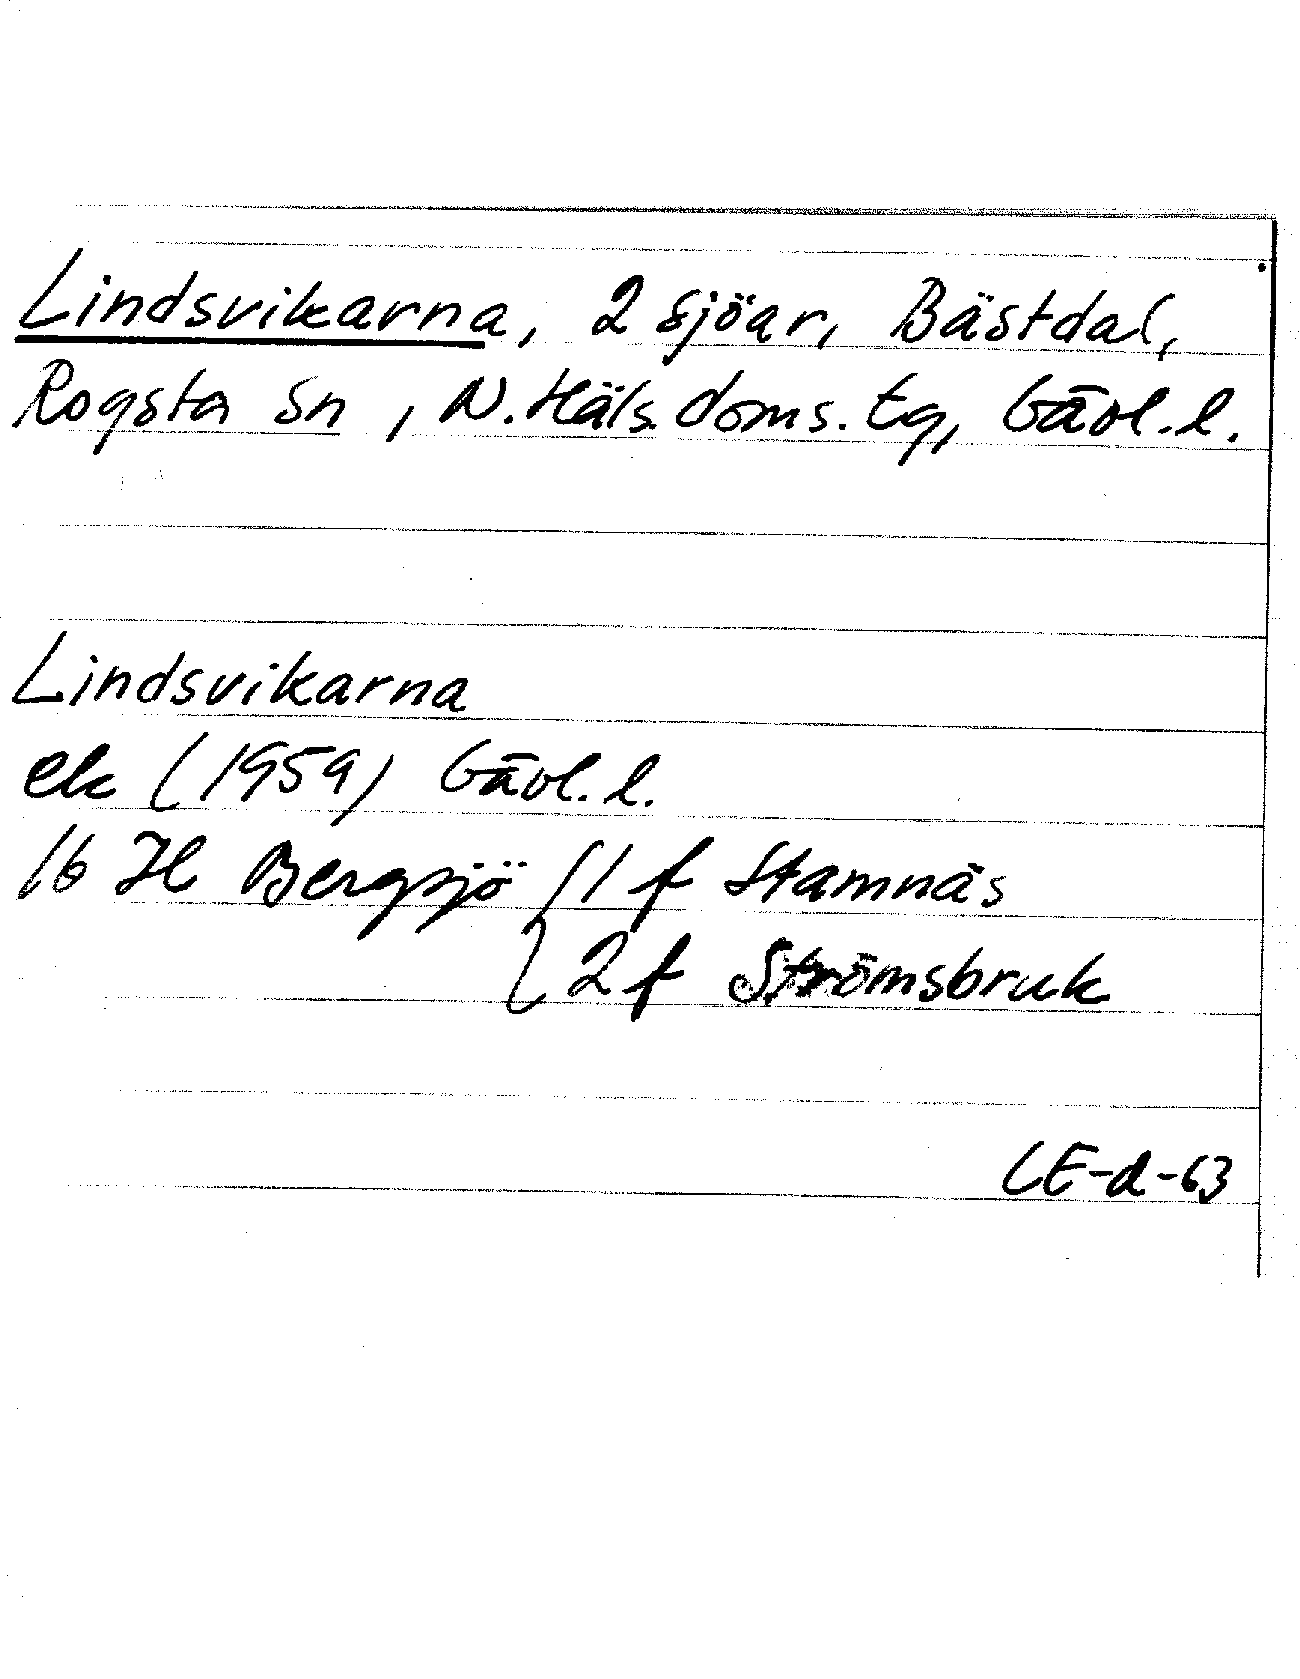 Lindsvikarna, 2 sjöar, Bästdal,
Rogsta sn, N. Häls. doms. tg, Gävl. l.
Lindsvikarna
ek (1959) Gävl. l.
16 H Bergsjö { 1 f Stamnäs
{ 2 f Strömsbruk
CE-d-63